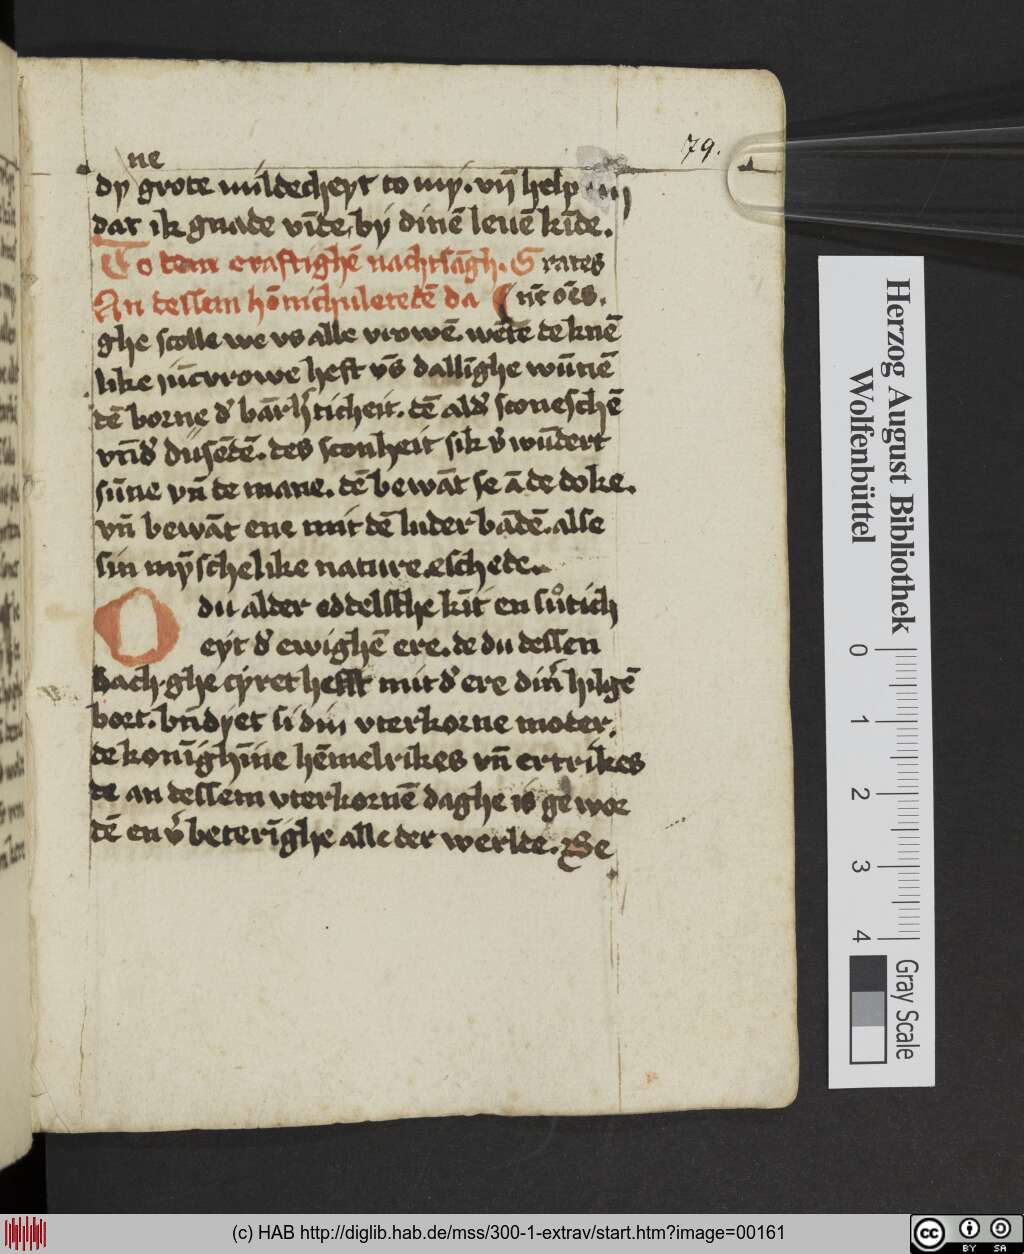 79.
ne
dy grote mildecheyt to my. vn̄ help my
dat ik gnade vīde, by dinē leuē kīde.
To dem eraftighē nachtsāgh. Grates
An dessem hōnichuletedē da nūc oēs.
ghe scolle we vs alle vrowē. wēte de knē
like iūcvrowe heft vs̄ dallīghe wūnē
dē borne d' bārh'ticheit. dē ald' sconeschē
vn̄d' dusēdē. des sconheit sik v'wūdert
sūne vn̄ de mane. dē bewāt se ā de doke.
vn̄ bewāt ene mit dē luderbādē. alse
sin mȳschelike nature eschede.
O du alder eddelsthe kīt en sůtich
eyt d' ewighē ere. de du dessen
dach ghe cyret hefft mit d' ere din' hilgē
bort. bn̄dyet si din vterkorne moder.
de konīghīne hēmelrikes vn̄ ertrikes
de an dessem vterkornē daghe is ge wor
dē en v'beterīghe alle der werlde. Se
Herzog August Bibliothek
Wolfenbüttel
0 1 2 3 4
Gray Scale
(c) HAB http://diglib.hab.de/mss/300-1-extrav/start.htm?image=00161
cc BY SA